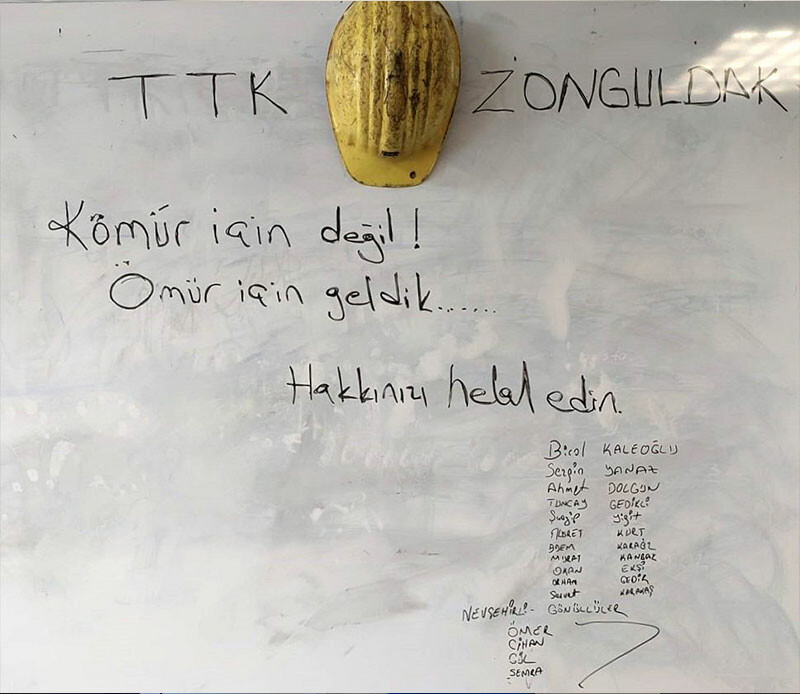 TTK ZONGULDAK
Kömür için değil!
Ömür için geldik.......
Hakkınızı helal edin.
Birol KALEOĞLU
Sezgin YANAZ
Ahmet DOLGUN
TUNCAY GEDİKLİ
Yiğit
KURT
ADEM KARAÖZ
MURAT
OKAN EKŞİ
ORHAN GEDİK
Servet KARAKAŞ
NEVŞEHİRLİ- GÖNÜLLÜLER
ÖMER
CİHAN
GÜL
SEMRA